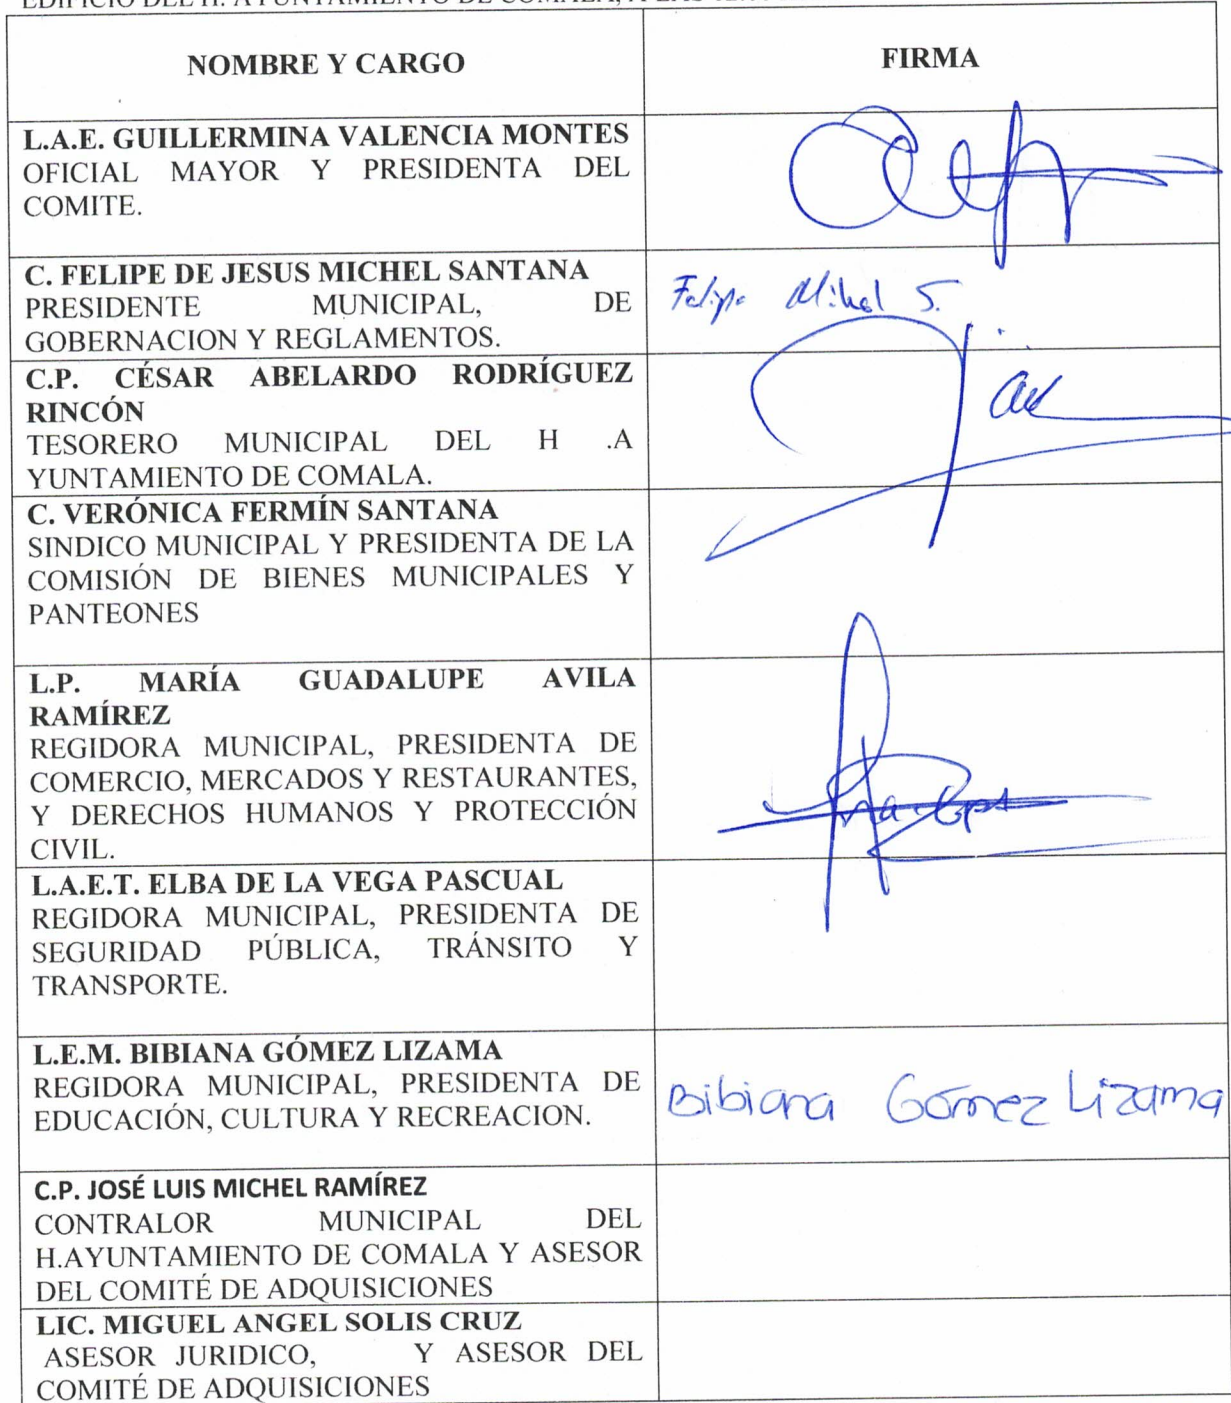 EDIFICIO DEL H. AYUNTAMIENTO DE COMALA, A LAS
NOMBRE Y CARGO
FIRMA
L.A.E. GUILLERMINA VALENCIA MONTES
OFICIAL MAYOR Y PRESIDENTA DEL
COMITE.
C. FELIPE DE JESUS MICHEL SANTANA
PRESIDENTE MUNICIPAL, DE
GOBERNACION Y REGLAMENTOS.
Felipe Michel S.
C.P. CÉSAR ABELARDO RODRÍGUEZ
RINCÓN
TESORERO MUNICIPAL DEL H .A
YUNTAMIENTO DE COMALA.
C. VERÓNICA FERMÍN SANTANA
SINDICO MUNICIPAL Y PRESIDENTA DE LA
COMISIÓN DE BIENES MUNICIPALES Y
PANTEONES
L.P. MARÍA GUADALUPE AVILA
RAMÍREZ
REGIDORA MUNICIPAL, PRESIDENTA DE
COMERCIO, MERCADOS Y RESTAURANTES,
Y DERECHOS HUMANOS Y PROTECCIÓN
CIVIL.
L.A.E.T. ELBA DE LA VEGA PASCUAL
REGIDORA MUNICIPAL, PRESIDENTA DE
SEGURIDAD PÚBLICA, TRÁNSITO Y
TRANSPORTE.
L.E.M. BIBIANA GÓMEZ LIZAMA
REGIDORA MUNICIPAL, PRESIDENTA DE
EDUCACIÓN, CULTURA Y RECREACION.
Bibiana Gómez Lizama
C.P. JOSÉ LUIS MICHEL RAMÍREZ
CONTRALOR MUNICIPAL DEL
H.AYUNTAMIENTO DE COMALA Y ASESOR
DEL COMITÉ DE ADQUISICIONES
LIC. MIGUEL ANGEL SOLIS CRUZ
ASESOR JURIDICO, Y ASESOR DEL
COMITÉ DE ADQUISICIONES